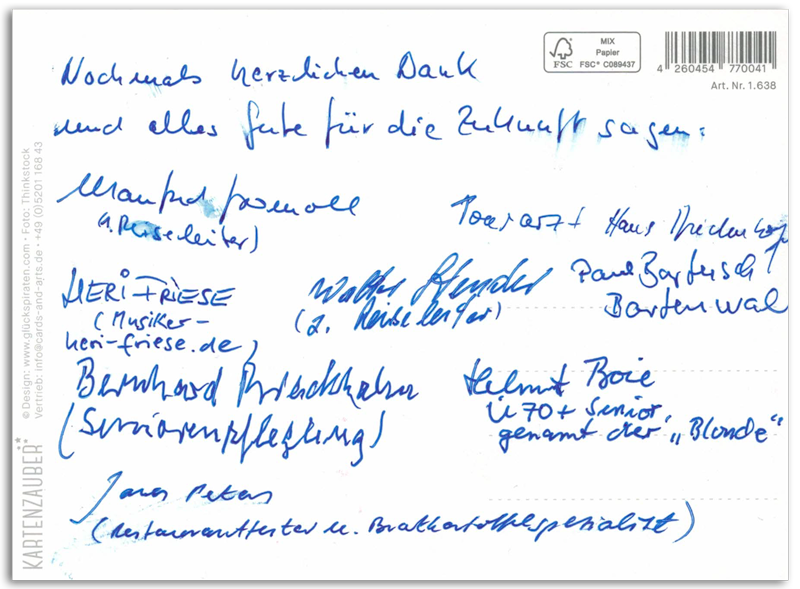 MIX
Papier
FSC
FSC® C089437
4 260454 770041
Art. Nr. 1.638
Nochmals herzlichen Dank
und alles Gute für die Zukunft sagen:
Manfred
(1. Reiseleiter)
Tourarzt Hans
Paul Bartusch
HERI FRIESE
(Musiker-
heri-friese.de)
Walter Stender
(2. Reiseleiter)
Bernhard
(Seniorenpflegling)
Helmut Boie
Ü70+ Senior,
genannt der „Blonde“
Peters
(Restauranttester u. Bratkartoffelspezialist)
© Design: www.glückspiraten.com · Foto: Thinkstock
Vertrieb: info@cards-and-arts.de · +49 (0)5201 168 43
KARTENZAUBER